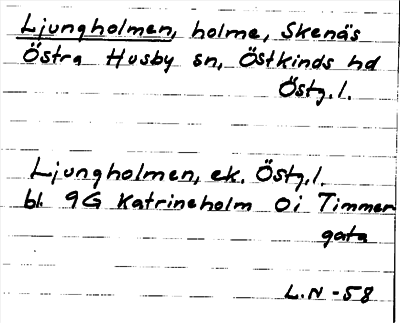 Ljungholmen, holme, Skenäs
Östra Husby sn, Östkinds hd
Östg.l.
Ljungholmen, ek. Östg.l.
bl. 9G Katrineholm 0i Timmer
gata
L.N -58